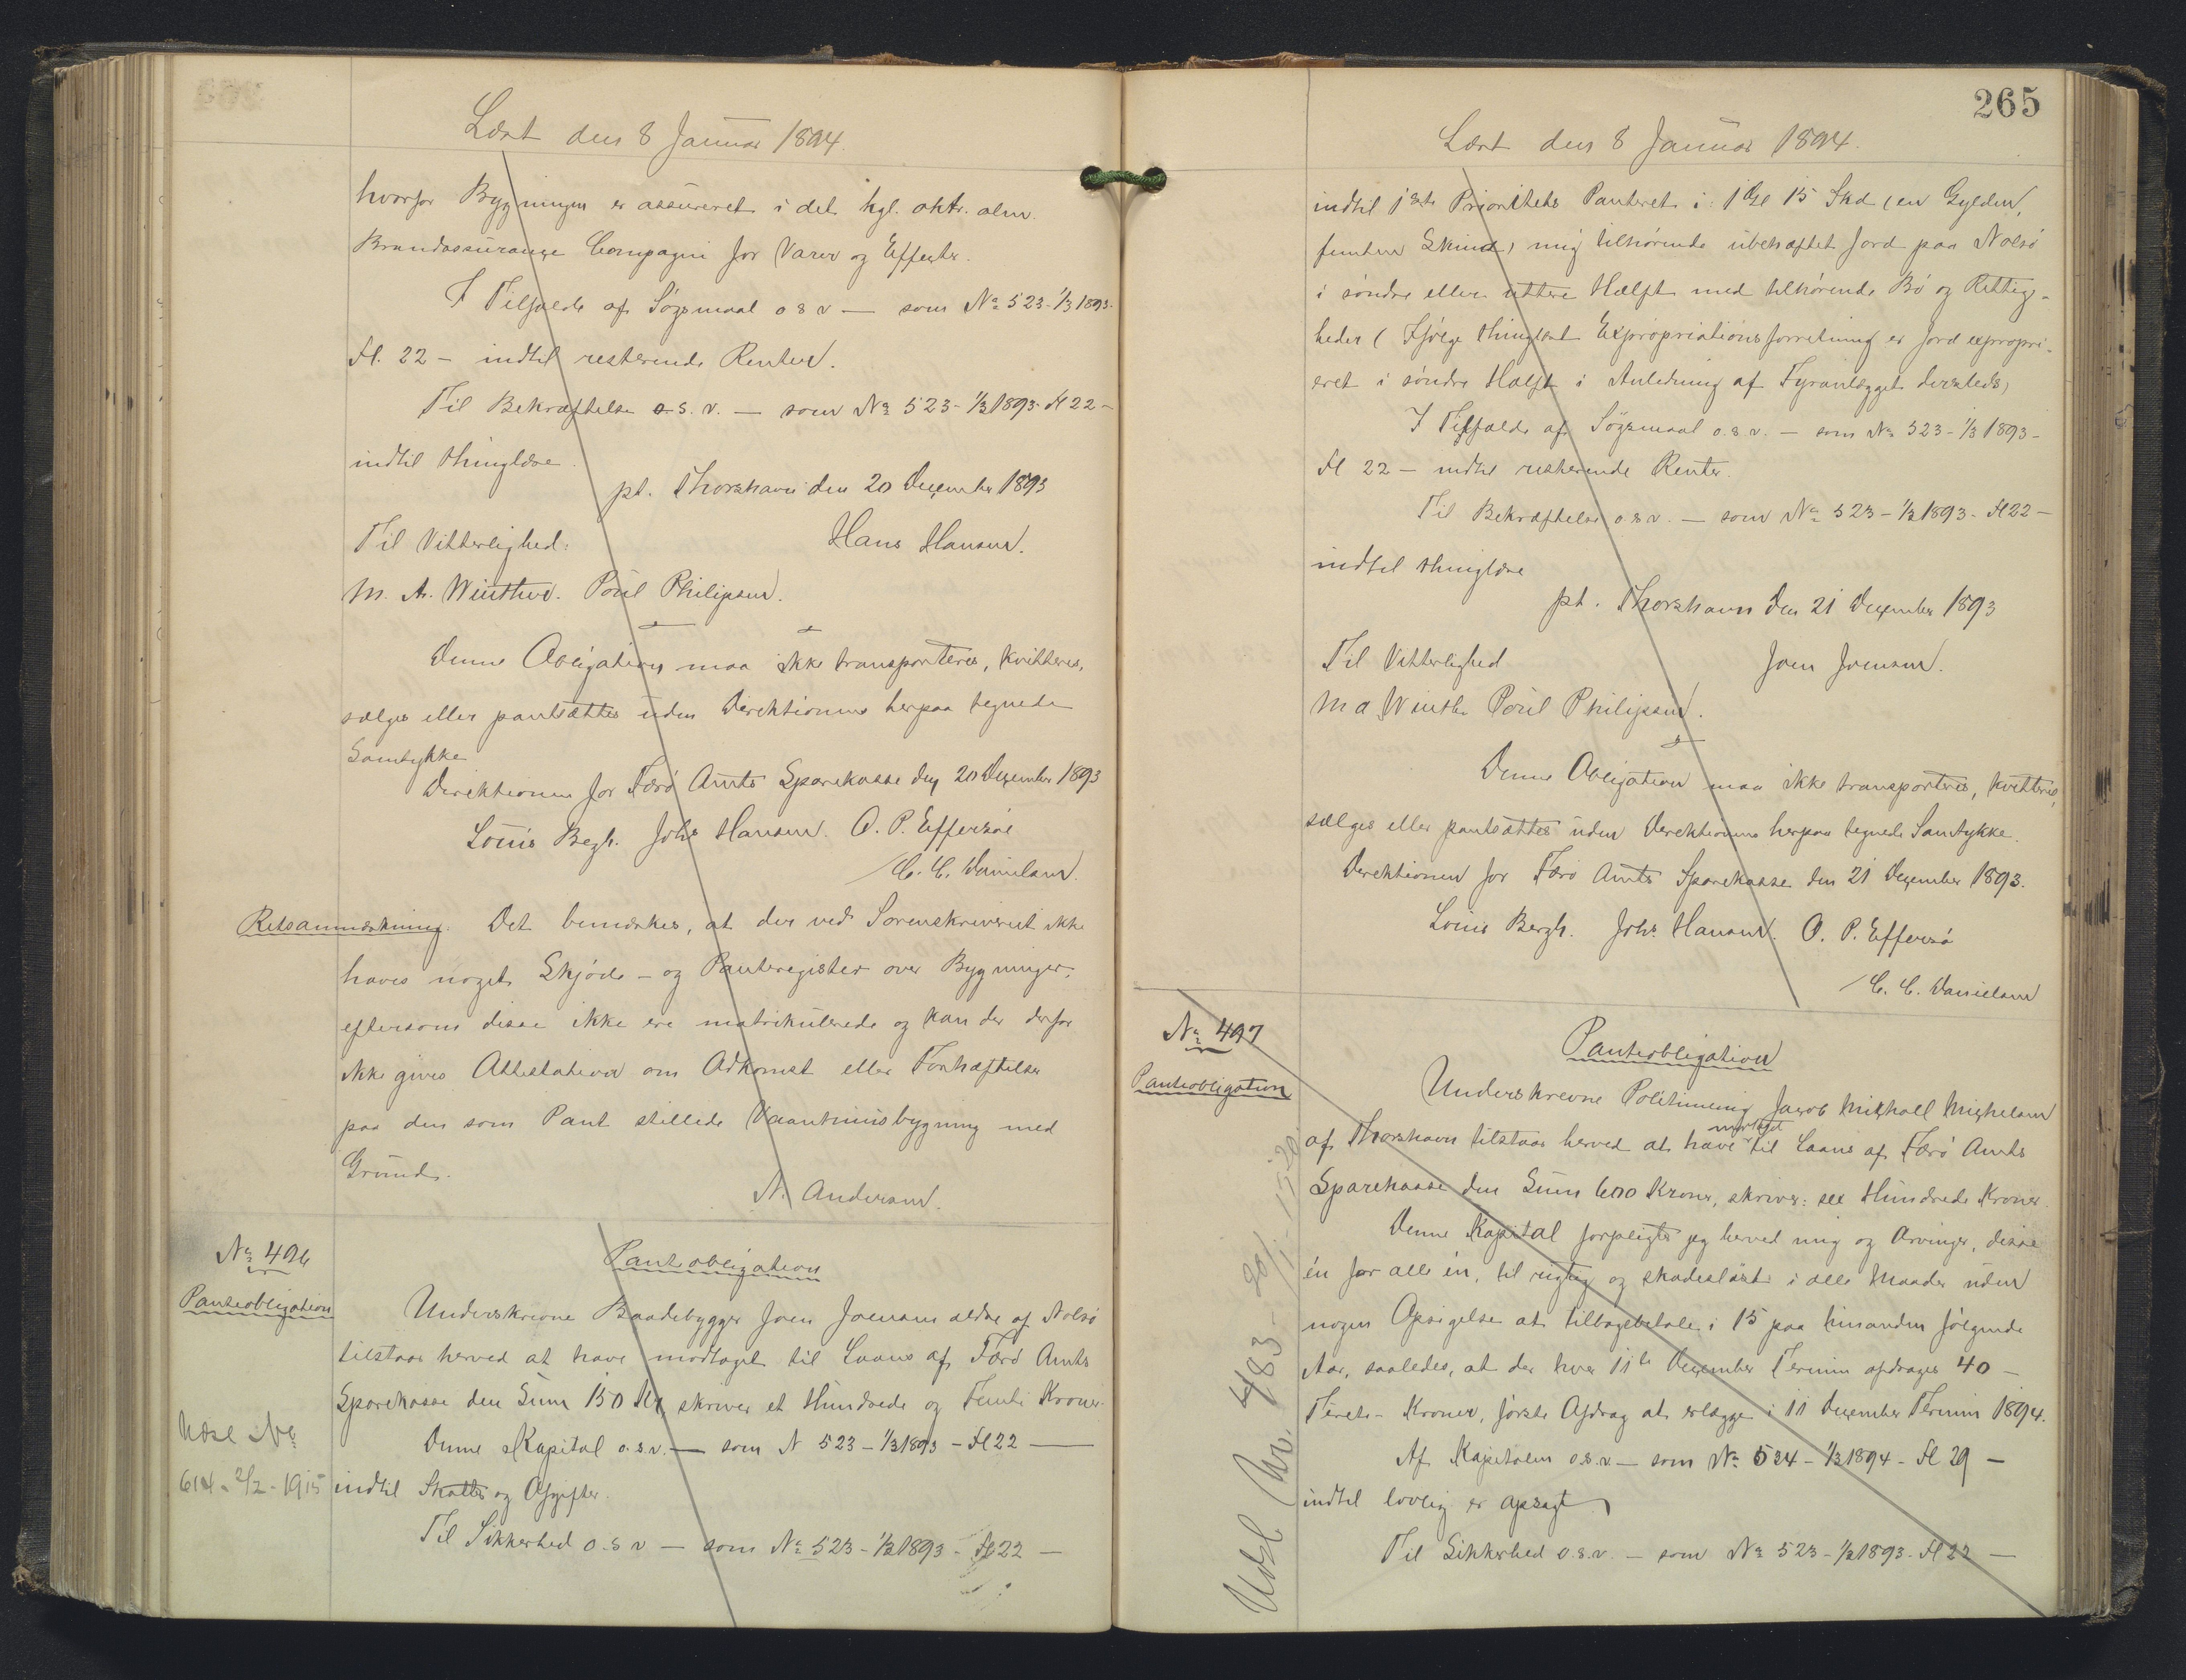 Læst den 8 Januar 1894.
hvorfor Bygningen er assureret i det kgl. oktr. alm.
Brandassurance Compagni for Varer og Effekter.
I Tilfælde af Søgsmaal o s v — som No 523 - 1/3 1893 -
Fl. 22 — indtil resterende Renter.
Til Bekræftelse o. s. v. — som No 523 - 1/3 1893 Fl 22 -
indtil thinglæse.
pt. Thorshavn den 20 December 1893
Til Vitterlighed: Hans Hansen.
M. A. Winther. Poul Philipsen.
Denne Obligation maa ikke transporteres, kvitteres,
sælges eller pantsættes uden Direktionens herpaa tegnede
Samtykke
Direktionen for Færø Amts Sparekasse den 20 December 1893
Louis Bergh. Johs Hansen. O. P. Effersøe
C. C. Danielsen.
Retsanmærkning: Det bemærkes, at der ved Sorenskriveriet ikke
haves noget Skjøde- og Panteregister over Bygninger,
eftersom disse ikke ere matrikulerede og kan der derfor
ikke gives Attestation om Adkomst eller Forhæftelser
paa den som Pant stillede Vaaningsbygning med
Grund.
N. Andersen.
No 496
Panteobligation
Panteobligation
Underskrevne Baadebygger Joen Joensen ældre af Nolsø
tilstaar herved at have modtaget til Laans af Færø Amts
Sparekasse den Sum 150 Kr, skriver et Hundrede og Femti Kroner.
Denne Kapital o. s. v. — som N 523 - 1/3 1893 - Fl 22 —
indtil Skatter og Afgifter.
Til Sikkerhed o. s v — som No 523 - 1/3 1893 - Fl 22 —
Udsl No
614 - 2/2 - 1915
265
Læst den 8 Januar 1894.
indtil 1ste Prioritets Panteret i: 1 Gl 15 Skd (en Gylden,
femten Skind) mig tilhørende ubehæftet Jord paa Nolsø
i søndre eller uttere Hælft med tilhørende Bø og Rettig-
heder (Ifølge thinglæst Expropriationsforretning er Jord expropri-
eret i søndre Hælft i Anledning af Fyranlægget dersteds)
I Tilfælde af Søgsmaal o. s. v. — som No 523 - 1/3 1893 -
Fl 22 — indtil resterende Renter
Til Bekræftelse o. s v. — som No 523 - 1/3 1893 - Fl 22 —
indtil thinglæse
pt. Thorshavn den 21 December 1893
Til Vitterlighed Joen Joensen.
M A Winther Poul Philipsen.
Denne Obligation maa ikke transporteres, kvitteres,
sælges eller pantsættes uden Direktionens herpaa tegnede Samtykke.
Direktionen for Færø Amts Sparekasse den 21 December 1893.
Louis Bergh. Johs Hansen. O. P. Effersø
C. C. Danielsen
No 497
Panteobligation
Panteobligation
Underskrevne Politimening Jacob Michael Michelsen
af Thorshavn tilstaar herved at have modtaget til Laans af Færø Amts
Sparekasse den Sum 600 Kroner, skriver: sex Hundrede Kroner.
Denne Kapital forpligter jeg herved mig og Arvinger, disse
én for alle én, til rigtig og skadesløst i alle Maader uden
nogen Opsigelse at tilbagebetale i 15 paa hinanden følgende
Aar, saaledes, at der hver 11te December Termin afdrages 40 -
Fireti - Kroner, første Afdrag at erlægge i 11 December Termin 1894.
Af Kapitalen o. s. v — som No 534 - 1/3 1894 - Fl 29 —
indtil lovlig er opsagt
Til Sikkerhed o. s. v. — som No 523 - 1/3 1893 - Fl 22 —
Udsl No.